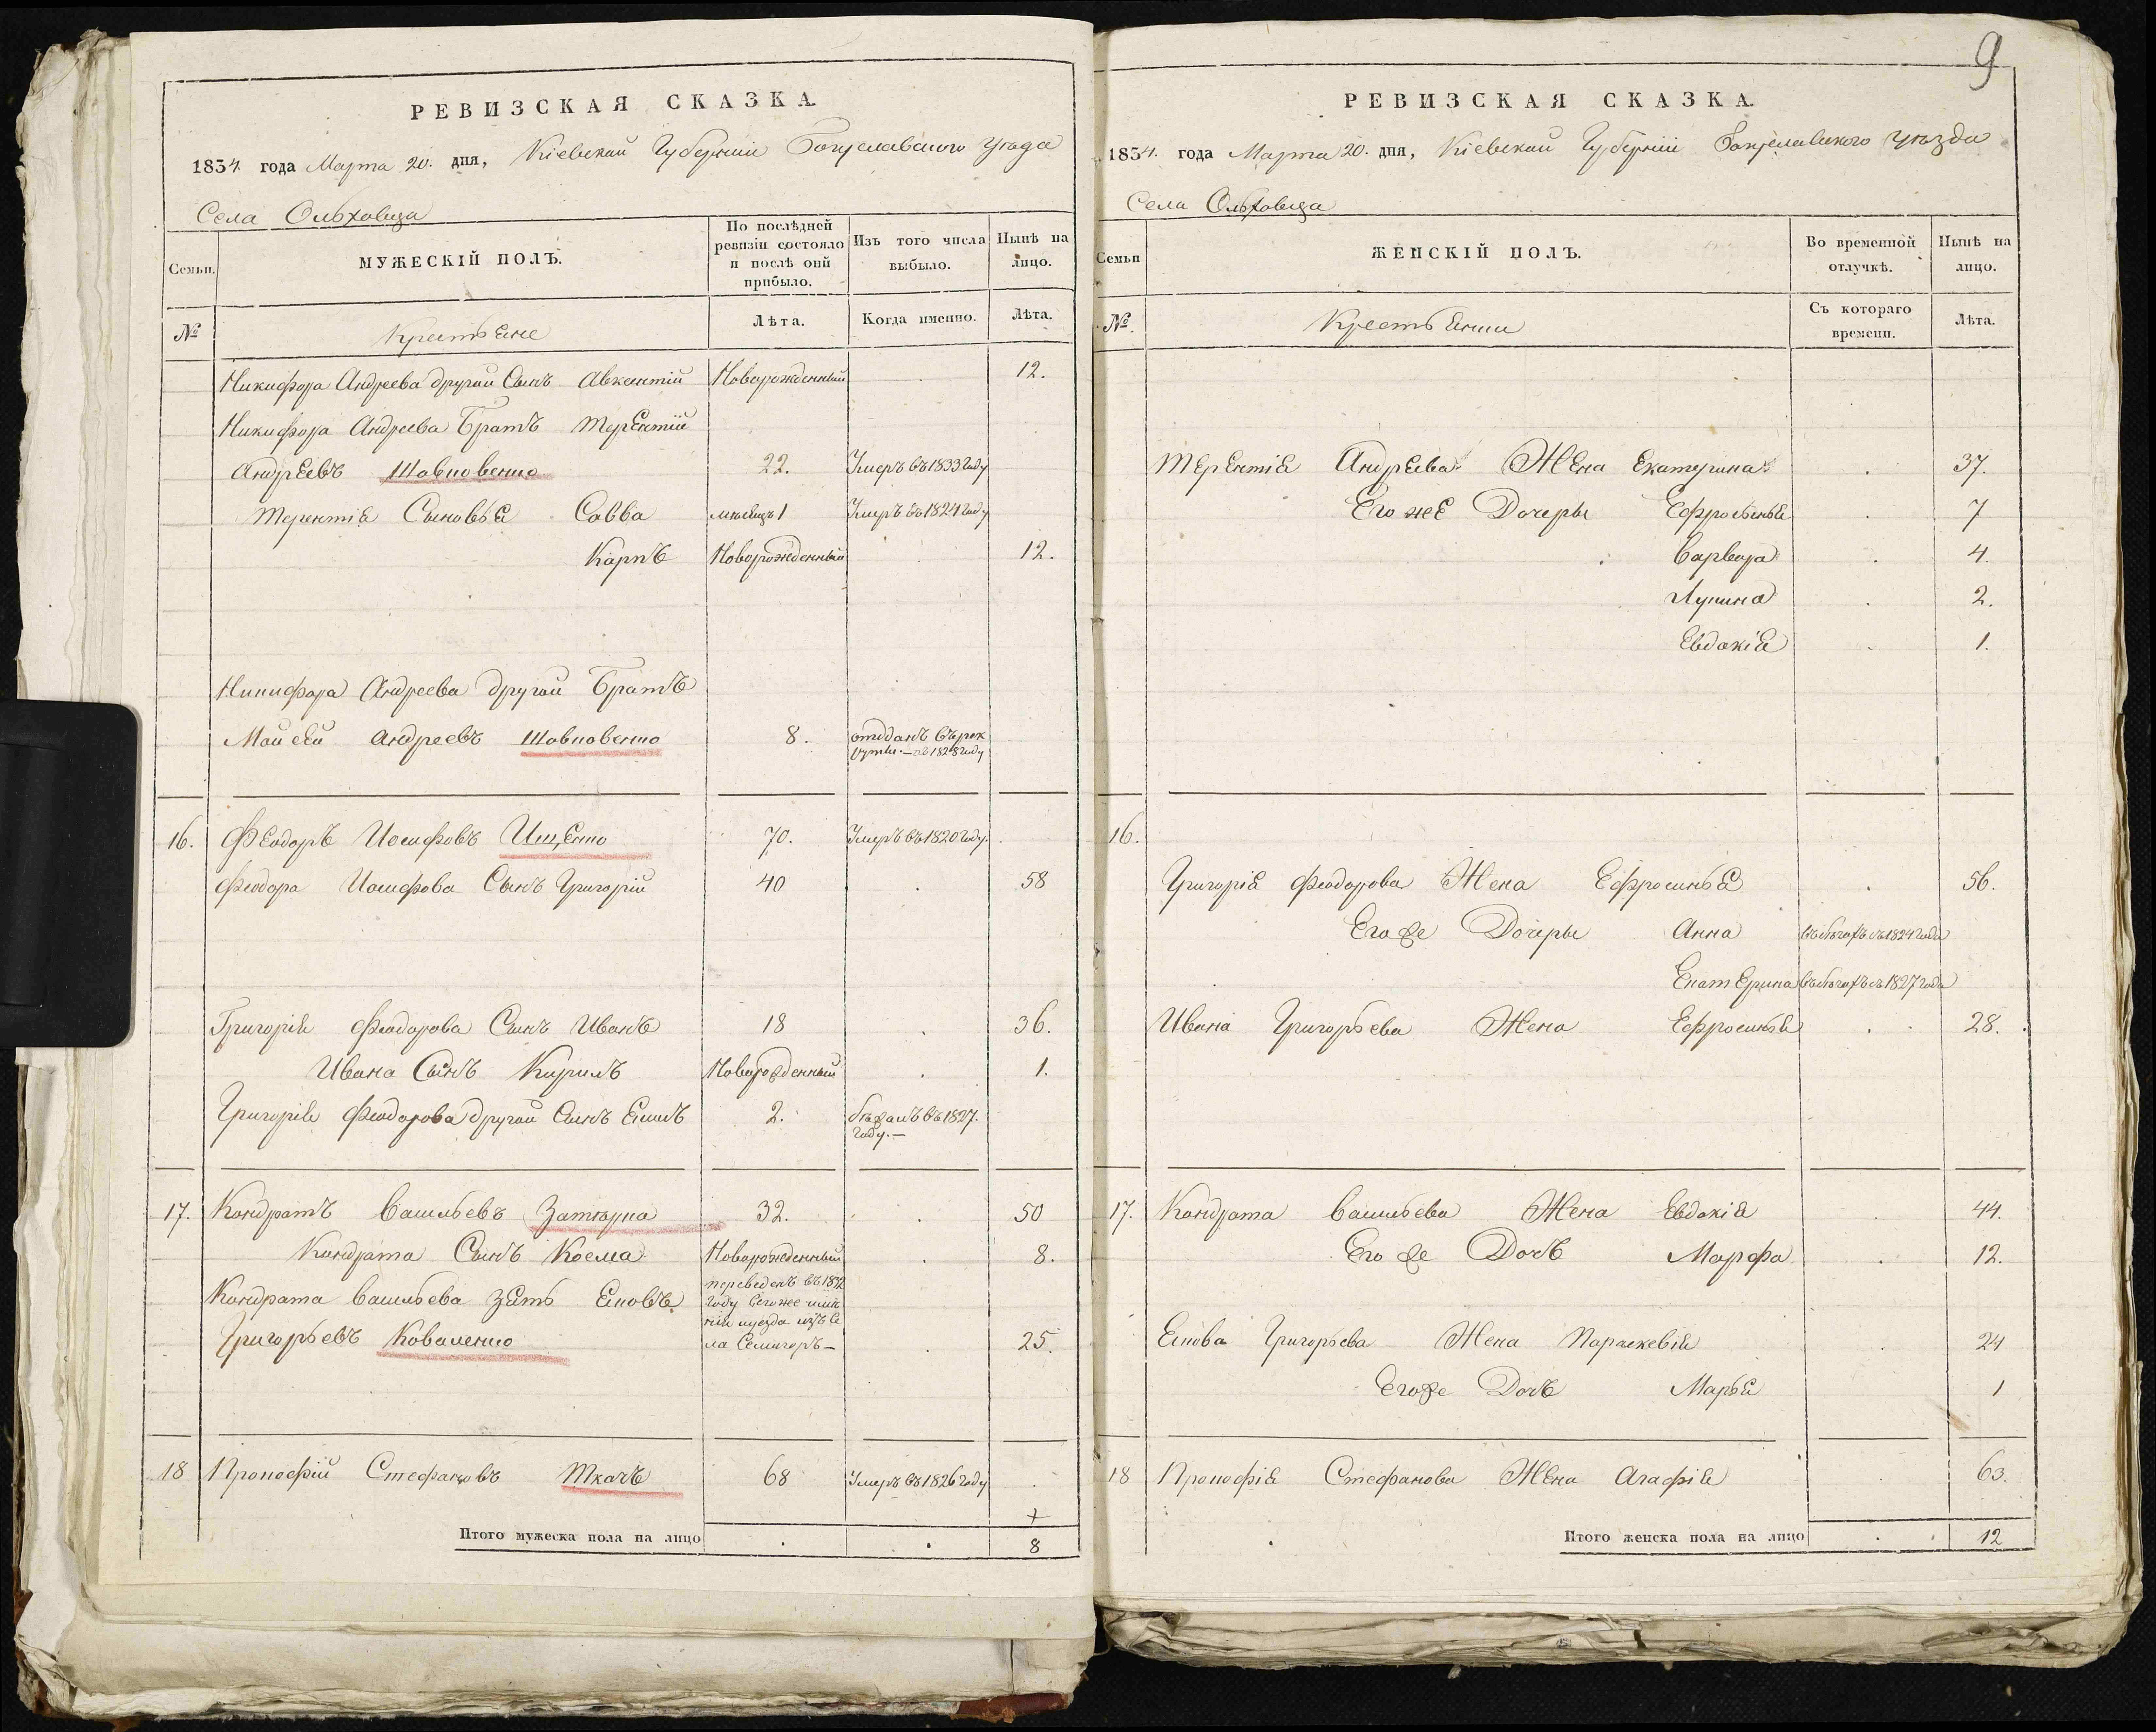 РЕВИЗСКАЯ СКАЗКА.
1834. года Марта 20. дня, Кіевской Губерніи Богуславского Уезда
Села Ольховца
Семьи.
МУЖЕСКІЙ ПОЛЪ.
По послѣдней ревизіи состояло и послѣ оной прибыло.
Изъ того числа выбыло.
Нынѣ на лицо.
№
Крестьяне
Лѣта.
Когда именно.
Лѣта.
Никифора Андреева другой Сынъ Авксентій Новорожденный 12.
Никифора Андреева Братъ Терентій
Андреевъ Шовковенко 22. Умеръ въ 1833 Году
Терентія Сыновья Савва месяцъ 1 Умеръ въ 1824 Году
Карпъ Новорожденный 12.
Никифора Андреева другой Братъ
Мойсей Андреевъ Шовковенко 8. отданъ въ рек
руты. — въ 1828 Году
16. Феодоръ Иосифовъ Ищенко 70. Умеръ въ 1820 Году.
Феодора Иосифова Сынъ Григорій 40 58
Григорія Феодорова Сынъ Иванъ 18 36.
Ивана Сынъ Кирилъ Новорожденный 1.
Григорія Феодорова другой Сынъ 2. бежалъ въ 1827.
Году. —
17. Кондратъ Васильевъ 32. 50
Кондрата Сынъ Косма Новорожденный 8.
переведенъ въ
Кондрата Васильева Зять Году
уезда изъ Се
Григорьевъ Коваленко ла Семигоръ — 25.
18 Прокофій Стефановъ Ткачъ 68 Умеръ въ 1826 Году
+
Итого мужеска пола на лицо 8
9
РЕВИЗСКАЯ СКАЗКА.
1834. года Марта 20. дня, Кіевской Губерніи Богуславского Уезда
Села Ольховца
Семьи
ЖЕНСКІЙ ПОЛЪ.
Во временной отлучкѣ.
Нынѣ на лицо.
№.
Крестьянки
Съ котораго времени.
Лѣта.
Терентія Андреева Жена Екатерина 37.
Его же Дочеры Ефросинья 7
Варвара 4.
2.
Евдокія 1.
16.
Григорія Феодорова Жена Ефросинья 56.
Его же Дочеры Анна въ бегахъ съ 1824 Года
Екатерина въ бегахъ съ 1827 Года
Ивана Григорьева Жена Ефросинья 28.
17. Кондрата Васильева Жена Евдокія 44.
Его же Дочь Марфа 12.
Григорьева Жена Параскевія 24
Его же Дочь Марья 1
18 Прокофія Стефанова Жена Агафія 63.
Итого женска пола на лицо 12